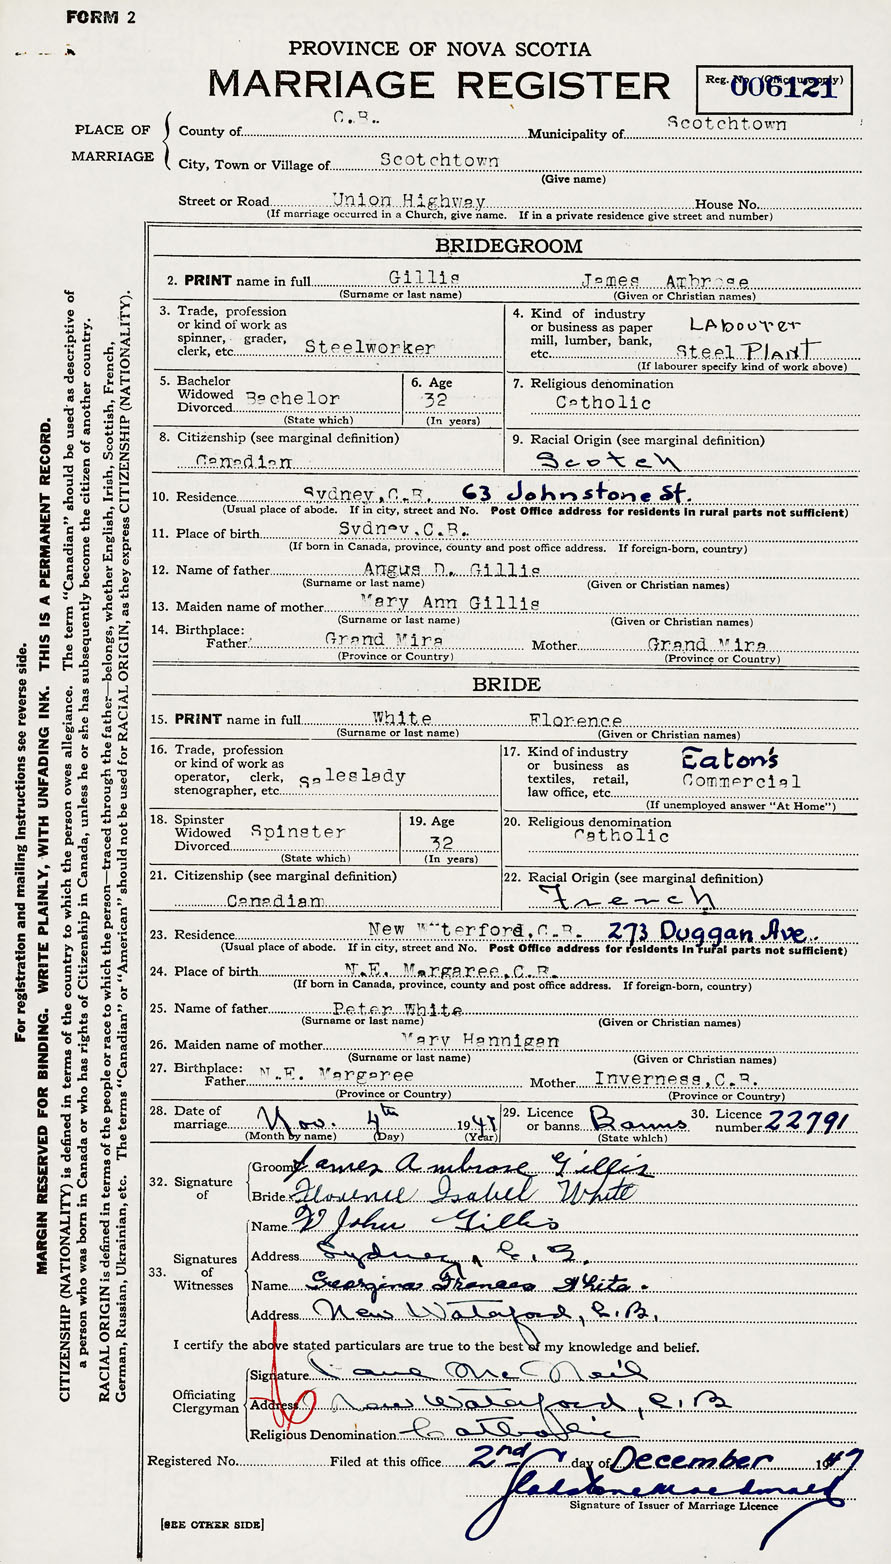 FORM 2
PROVINCE OF NOVA SCOTIA
MARRIAGE REGISTER
Reg. No. (Office use only)
006121
PLACE OF MARRIAGE
County of C.B. Municipality of Scotchtown
City, Town or Village of Scotchtown
(Give name)
Street or Road Union Highway House No.
(If marriage occurred in a Church, give name. If in a private residence give street and number)
BRIDEGROOM
2. PRINT name in full Gillis James Ambrose
(Surname or last name) (Given or Christian names)
3. Trade, profession or kind of work as spinner, grader, clerk, etc. Steelworker
4. Kind of industry or business as paper mill, lumber, bank, etc. LAbourer Steel PlANT
(If labourer specify kind of work above)
5. Bachelor Widowed Divorced Bachelor
(State which)
6. Age 32
(In years)
7. Religious denomination
Catholic
8. Citizenship (see marginal definition)
Canadian
9. Racial Origin (see marginal definition)
Scotch
10. Residence Sydney, C.B. 63 Johnstone St.
(Usual place of abode. If in city, street and No. Post Office address for residents in rural parts not sufficient)
11. Place of birth Sydney, C.B.
(If born in Canada, province, county and post office address. If foreign-born, country)
12. Name of father Angus D. Gillis
(Surname or last name) (Given or Christian names)
13. Maiden name of mother Mary Ann Gillis
(Surname or last name) (Given or Christian names)
14. Birthplace:
Father Grand Mira Mother Grand Mira
(Province or Country) (Province or Country)
BRIDE
15. PRINT name in full White Florence
(Surname or last name) (Given or Christian names)
16. Trade, profession or kind of work as operator, clerk, stenographer, etc. saleslady
17. Kind of industry or business as textiles, retail, law office, etc. Eaton's Commercial
(If unemployed answer "At Home")
18. Spinster Widowed Divorced Spinster
(State which)
19. Age 32
(In years)
20. Religious denomination
Catholic
21. Citizenship (see marginal definition)
Canadian
22. Racial Origin (see marginal definition)
French
23. Residence New Waterford, C.B. 273 Duggan Ave.
(Usual place of abode. If in city, street No. Post Office address for residents in rural parts not sufficient)
24. Place of birth N.E. Margaree, C.B.
(If born in Canada, province, county and post office address. If foreign-born, country)
25. Name of father Peter White
(Surname or last name) (Given or Christian names)
26. Maiden name of mother Mary Hannigan
(Surname or last name) (Given or Christian names)
27. Birthplace:
Father N.E. Margaree Mother Inverness, C.B.
(Province or Country) (Province or Country)
28. Date of marriage Nov. 4th 1947
(Month by name) (Day) (Year)
29. Licence or banns Banns
(State which)
30. Licence number 22791
32. Signature of
Groom James Ambrose Gillis
Bride Florence Isabel White
33. Signatures of Witnesses
Name John Gillis
Address Sydney, C.B.
Name Georgina Frances White.
Address New Waterford, C.B.
I certify the above stated particulars are true to the best of my knowledge and belief.
Officiating Clergyman
Signature McNeil
Address New Waterford, C.B
Religious Denomination Catholic
Registered No. Filed at this office 2nd day of December 1947
Gladstone Macdonald
Signature of Issuer of Marriage Licence
[SEE OTHER SIDE]
For registration and mailing instructions see reverse side.
MARGIN RESERVED FOR BINDING. WRITE PLAINLY, WITH UNFADING INK. THIS IS A PERMANENT RECORD.
CITIZENSHIP (NATIONALITY) is defined in terms of the country to which the person owes allegiance. The term "Canadian" should be used as descriptive of
a person who was born in Canada or who has rights of Citizenship in Canada, unless he or she has subsequently become the citizen of another country.
RACIAL ORIGIN is defined in terms of the people or race to which the person—traced through the father—belongs, whether English, Irish, Scottish, French,
German, Russian, Ukrainian, etc. The terms "Canadian" or "American" should not be used for RACIAL ORIGIN, as they express CITIZENSHIP (NATIONALITY).